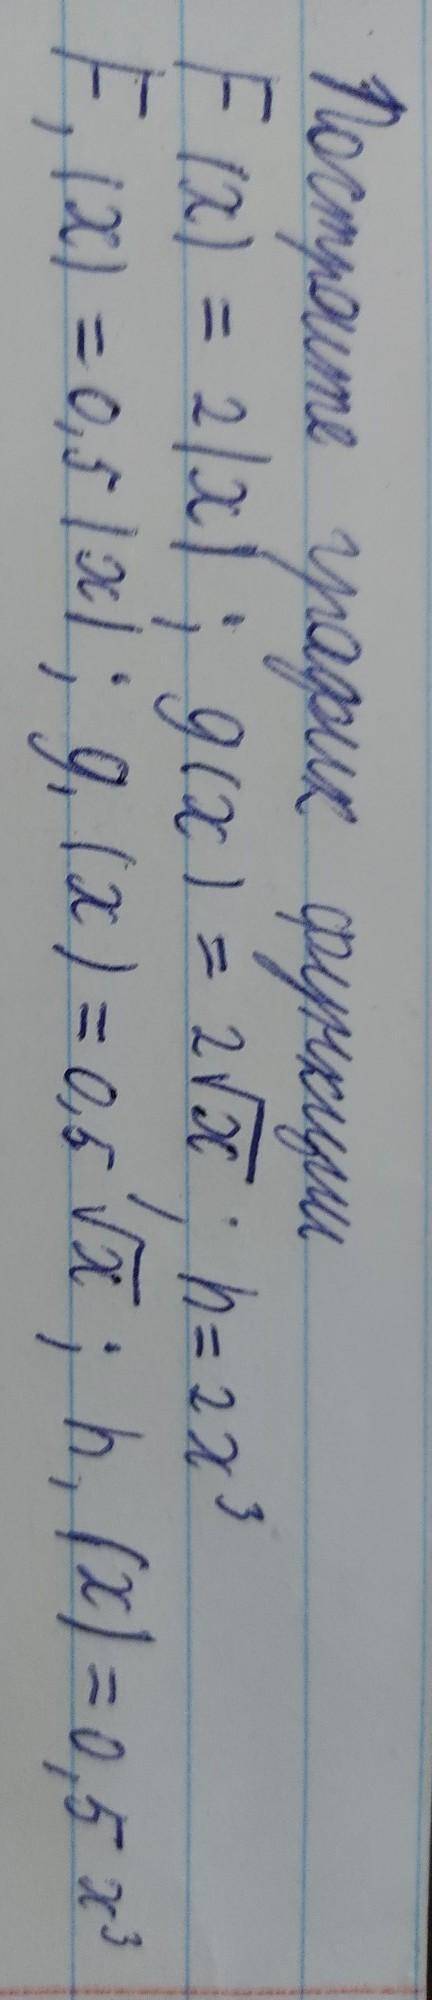 Постройте график функции
F(x) = 2|x|; g(x) = 2√x; h = 2x³
F₁(x) = 0,5|x|; g₁(x) = 0,5√x; h₁(x) = 0,5x³